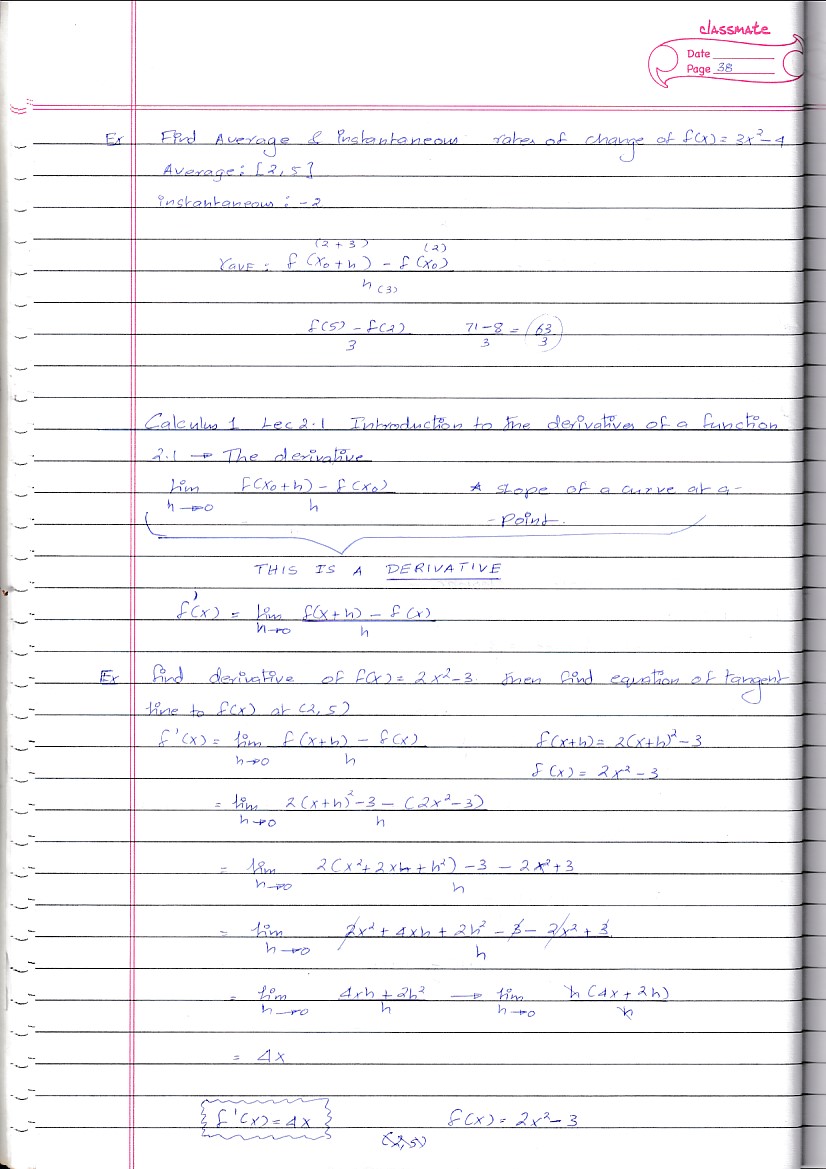 classmate
Date
Page 38
Ex Find Average & Instantaneous rates of change of f(x) = 3x²-4
Average: [2, 5]
instantaneous: -2
(2+3) (2)
rAVE: f(x₀+h) - f(x₀)
h (3)
f(5) - f(2) 71-8 = 63
3 3 3
Calculus 1 Lec 2.1 Introduction to the derivatives of a function
2.1 → The derivative
lim f(x₀+h) - f(x₀) * slope of a curve at a-
h→0 h -point.
THIS IS A DERIVATIVE
f'(x) = lim f(x+h) - f(x)
h→0 h
Ex find derivative of f(x) = 2x²-3 then find equation of tangent
line to f(x) at (2, 5)
f'(x) = lim f(x+h) - f(x) f(x+h) = 2(x+h)²-3
h→0 h f(x) = 2x²-3
= lim 2(x+h)²-3 - (2x²-3)
h→0 h
= lim 2(x²+2xh+h²)-3 - 2x²+3
h→0 h
= lim 2x²+4xh+2h²-3-2x²+3
h→0 h
= lim 4xh+2h² → lim h(4x+2h)
h→0 h h→0 h
= 4x
f'(x) = 4x f(x) = 2x²-3
(2,5)